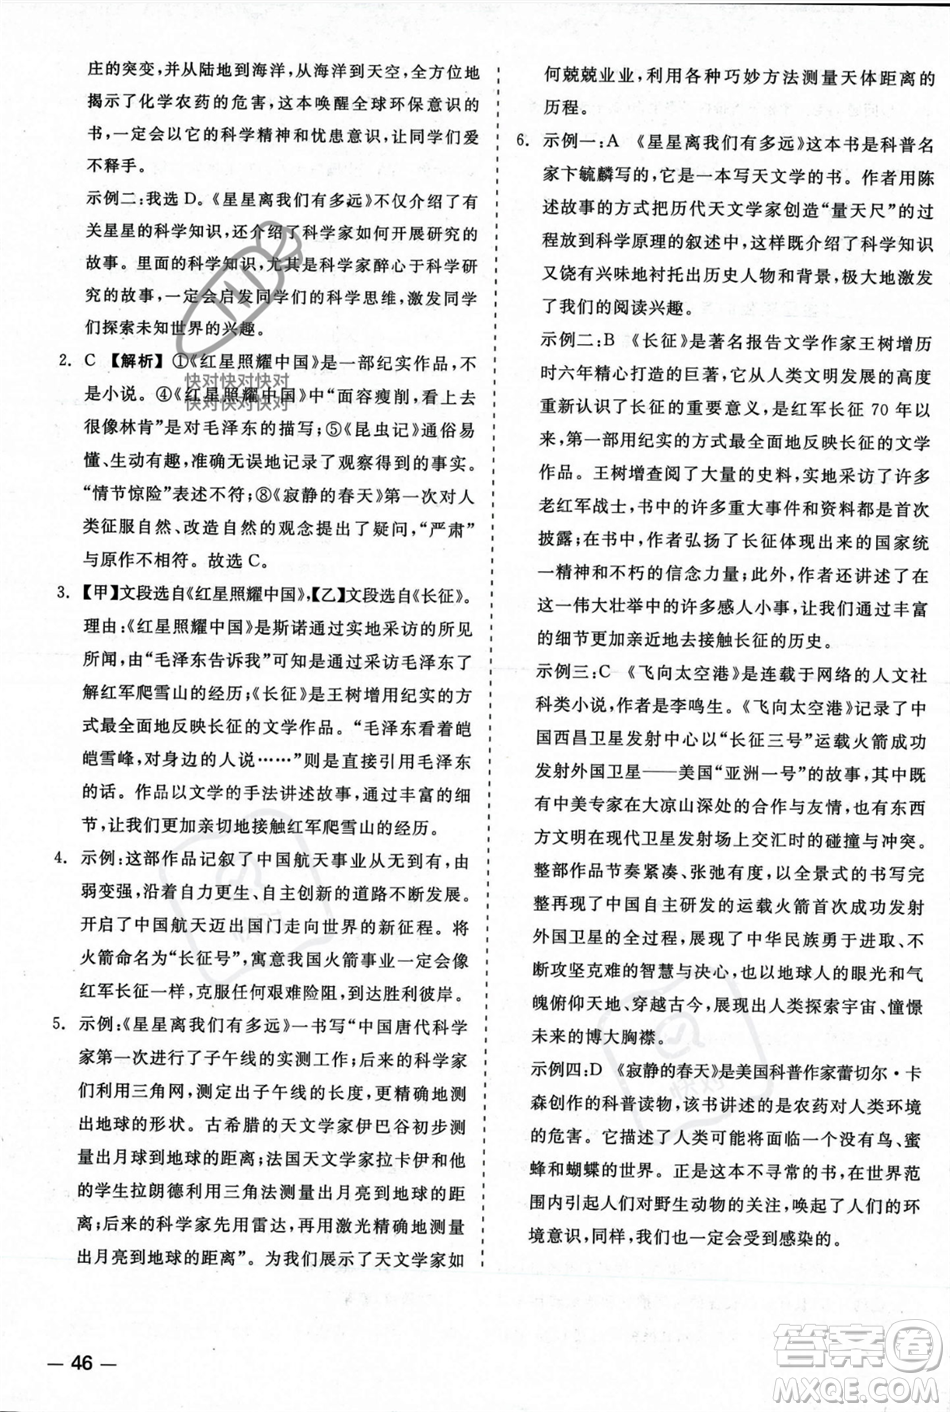 庄的突变,并从陆地到海洋,从海洋到天空,全方位地
揭示了化学农药的危害,这本唤醒全球环保意识的
书,一定会以它的科学精神和忧患意识,让同学们爱
不释手。
示例二:我选 D。《星星离我们有多远》不仅介绍了有
关星星的科学知识,还介绍了科学家如何开展研究的
故事。里面的科学知识,尤其是科学家醉心于科学研
究的故事,一定会启发同学们的科学思维,激发同学
们探索未知世界的兴趣。
2. C 【解析】①《红星照耀中国》是一部纪实作品,不
是小说。④《红星照耀中国》中“面容瘦削,看上去
很像林肯”是对毛泽东的描写;⑤《昆虫记》通俗易
懂、生动有趣,准确无误地记录了观察得到的事实。
“情节惊险”表述不符;⑧《寂静的春天》第一次对人
类征服自然、改造自然的观念提出了疑问,“严肃”
与原作不相符。故选 C。
3. 【甲】文段选自《红星照耀中国》,【乙】文段选自《长征》。
理由:《红星照耀中国》是斯诺通过实地采访的所见
所闻,由“毛泽东告诉我”可知是通过采访毛泽东了
解红军爬雪山的经历;《长征》是王树增用纪实的方
式最全面地反映长征的文学作品。“毛泽东看着皑
皑雪峰,对身边的人说……”可知引用是描写毛泽东
的话。作品以文学的手法讲述故事,通过丰富的细
节,让我们更加亲切地接触红军爬雪山的经历。
4. 示例:这部作品记叙了中国航天事业从无到有、由
弱变强,沿着自力更生、自主创新的道路不断发展。
开启了中国航天迈出国门走向世界的新征程。将
火箭命名为“长征号”,寓意我国火箭事业一定会像
红军长征一样,克服任何艰难险阻,到达胜利彼岸。
5. 示例:《星星离我们有多远》一书写“中国唐代科学
家第一次进行了子午线的实测工作;后来的科学家
们利用三角网,测定出子午线的长度,更精确地测
出了地球的形状。古希腊的天文学家伊巴谷初步测量
出月球到地球的距离;法国天文学家拉卡伊和他
的学生拉朗德利用三角法测量出月亮到地球的距
离;后来的科学家先用雷达,再用激光精确地测量
出月亮到地球的距离”。为我们展示了天文学家如
何兢兢业业,利用各种巧妙方法测量天体距离的
历程。
6. 示例一:A 《星星离我们有多远》这本书是科普名
家卞毓麟写的,是一本写天文学的书。作者用陈
述故事的方式把历代天文学家创造“量天尺”的
过程放到科学原理的叙述中,这样既介绍了知识,
又饶有兴味地衬托出历史人物和背景,极大地激发
了我们的阅读兴趣。
示例二:B 《长征》是著名报告文学作家王树增历
时六年精心打造的巨著,它从人类文明发展的高度
重新认识了长征的重要意义,是红军长征 70 年以
来,第一部用纪实的方式最全面地反映长征的文学
作品。王树增查阅了大量的史料,实地采访了许多
老红军战士,书中的很多重大事件和资料都是首次
披露。在书中,作者弘扬了长征体现出来的国家统
一精神和不朽的信念力量。同时,作品还讲述了在
这一伟大壮举中的许多感人小事,让我们通过丰富
的细节更加亲近地去接触长征的历史。
示例三:C 《飞向太空港》是连载于网络的人文社
科类小说,作者是李鸣生。《飞向太空港》记录了中
国西昌卫星发射中心以“长征三号”运载火箭成功
发射外国卫星——美国“亚洲一号”的故事,其间既
有中美专家在大凉山深处的合作与友情,也有东西
方文明在现代卫星发射场上交汇时的碰撞与冲突。
作品节奏紧凑、张弛有度,以全景式的书写完整讲
述了中国自主研发的运载火箭首次成功发射
外国卫星的全过程,展现了中华民族勇于进取、不
断攻坚克难的智慧与决心,以地球人的眼光和气
魄俯仰天地、穿越古今,展现了人类探索宇宙、憧憬
未来的博大胸襟。
示例四:D 《寂静的春天》是美国科普作家蕾切尔·卡
森创作的科普读物,该书讲述的是农药对人类环境
的危害。它描述了人类可能将面临一个没有鸟、蜜
蜂和蝴蝶的世界。正是这本不寻常的书,在世界范
围内引起人们对野生动物的关注,唤起了人们的环
境意识,读后,我们一定会受到感染的。
— 46 —
快对快对快对
快对快对快对
答案圈
MXQE.COM